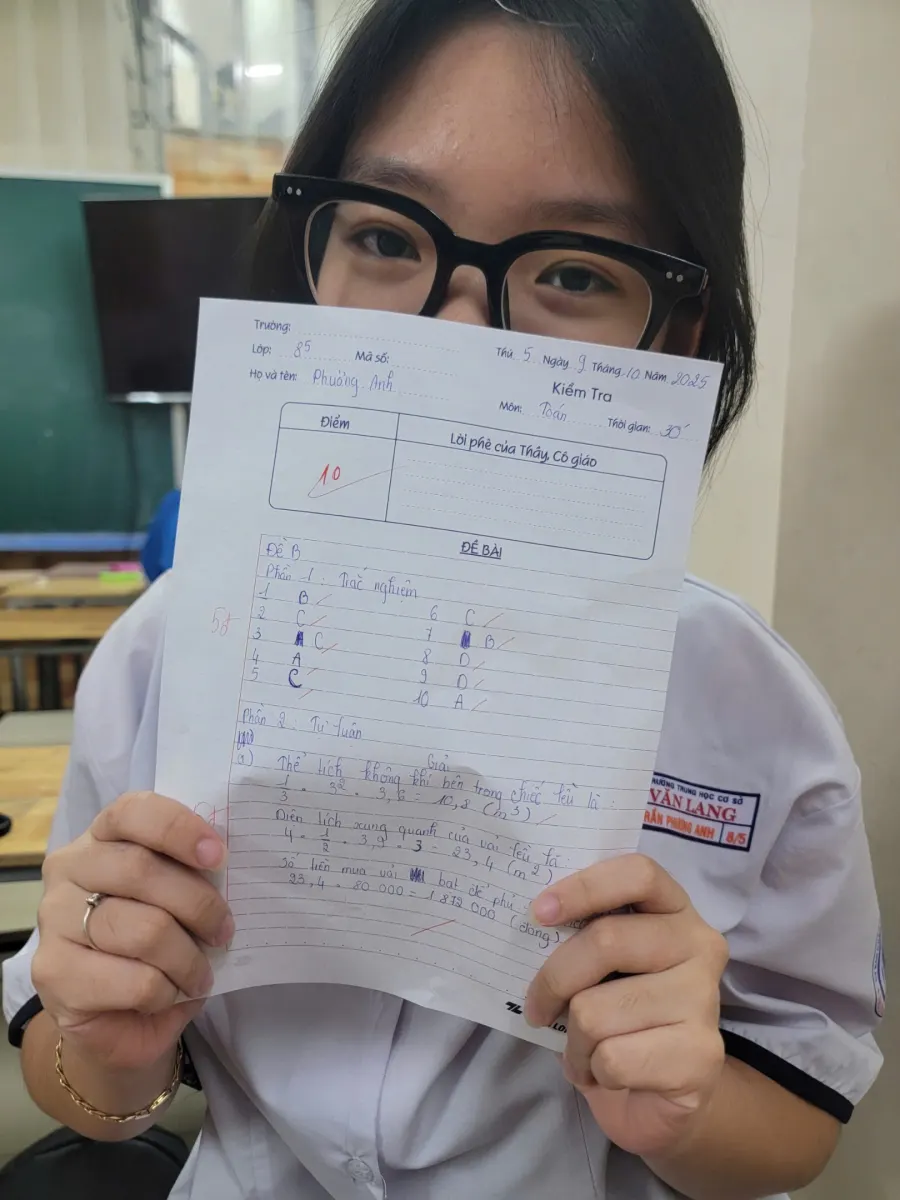 Trường:
Lớp: 8⁵ Mã số:
Họ và tên: Phương Anh
Thứ 5 Ngày 9 Tháng 10 Năm 2025
Kiểm Tra
Môn: Toán Thời gian: 30'
Điểm
Lời phê của Thầy, Cô giáo
10
ĐỀ BÀI
Đề B
Phần 1: Trắc nghiệm
1 B
2 C
3 C
4 A
5 C
6 C
7 B
8 D
9 D
10 A
5đ
Phần 2: Tự luận
Giải
a) Thể tích không khí bên trong chiếc lều là:
1/3 . 3². 3,6 = 10,8 (m³)
Diện tích xung quanh của vải lều là:
4 . 1/2 . 3,9 . 3 = 23,4 (m²)
Số tiền mua vải bạt để phủ
23,4 . 80 000 = 1 872 000 (đồng)
TRƯỜNG TRUNG HỌC CƠ SỞ
VĂN LANG
TRẦN PHƯƠNG ANH 8/5